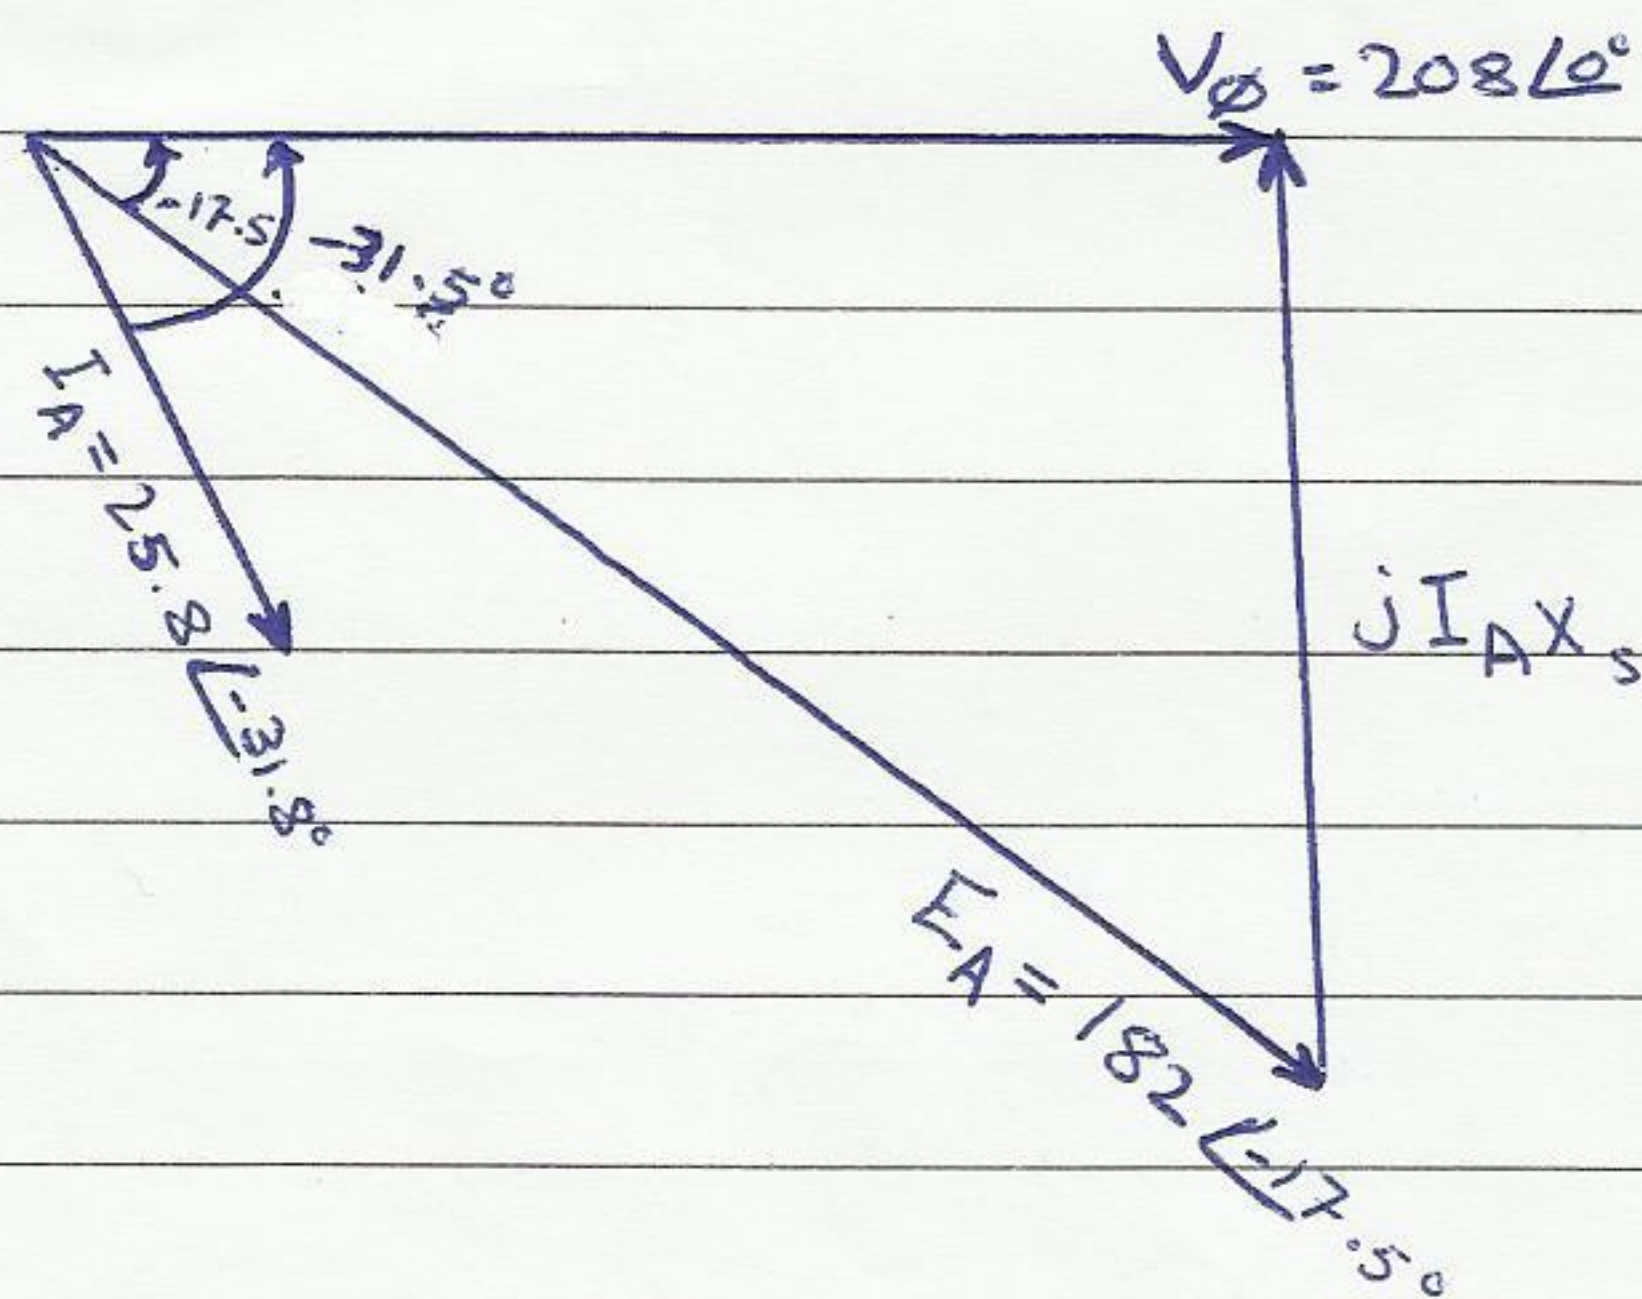 Vφ = 208∠0°
-17.5
-31.5°
I_A = 25.8∠-31.8°
jI_AX_s
E_A = 182∠-17.5°